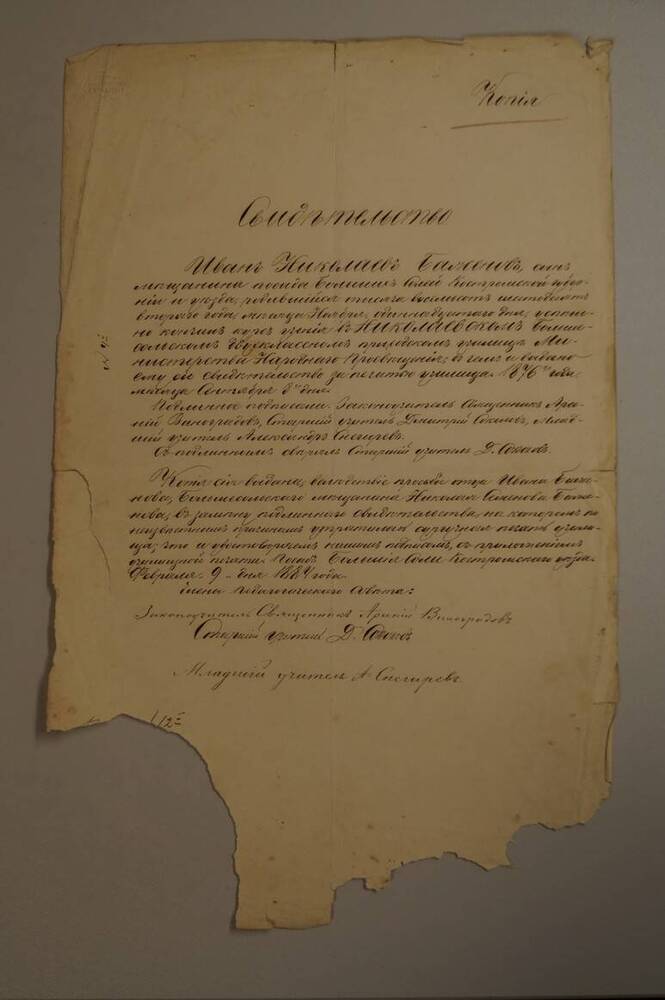 Копія
Свидѣтельство
Иванъ Николаевъ Баженовъ, сынъ
мѣщанина посада Большихъ Солей Костромской губер-
ніи и уѣзда, родившійся тысяча восемьсотъ шестьдесятъ
втораго года, мѣсяца Ноября, одиннадцатаго дня, успѣш-
но кончилъ курсъ ученія въ Николаевскомъ Больше-
сольскомъ двухклассномъ городскомъ училищѣ Ми-
нистерства Народнаго Просвѣщенія; въ чемъ и выдано
ему сіе свидѣтельство за печатью училища. 1876го года,
мѣсяца Сентября 8го дня.
Подлинное подписали: Законоучитель Священникъ Арсе-
ній Виноградовъ, Старшій учитель Дмитрій Соколовъ, Млад-
шій учитель Александръ Снегиревъ.
Съ подлиннымъ свѣрялъ Старшій учитель Д. Соколовъ.
Копія сія выдана, вслѣдствіе просьбы отца Ивана Баже-
нова, Большесольскаго мѣщанина Николая Семенова Баже-
нова, въ замѣну подлиннаго свидѣтельства, на которомъ по
неизвѣстнымъ причинамъ утратилась сургучная печать учили-
ща; что и удостовѣряемъ нашимъ подписомъ, съ приложеніемъ
училищной печати. Посадъ Большія Соли Костромскаго уѣзда.
Февраля 9 дня 1884 года.
Члены Педагогическаго Совѣта:
Законоучитель Священникъ Арсеній Виноградовъ
Старшій учитель Д. Соколовъ
Младшій учитель А. Снегиревъ